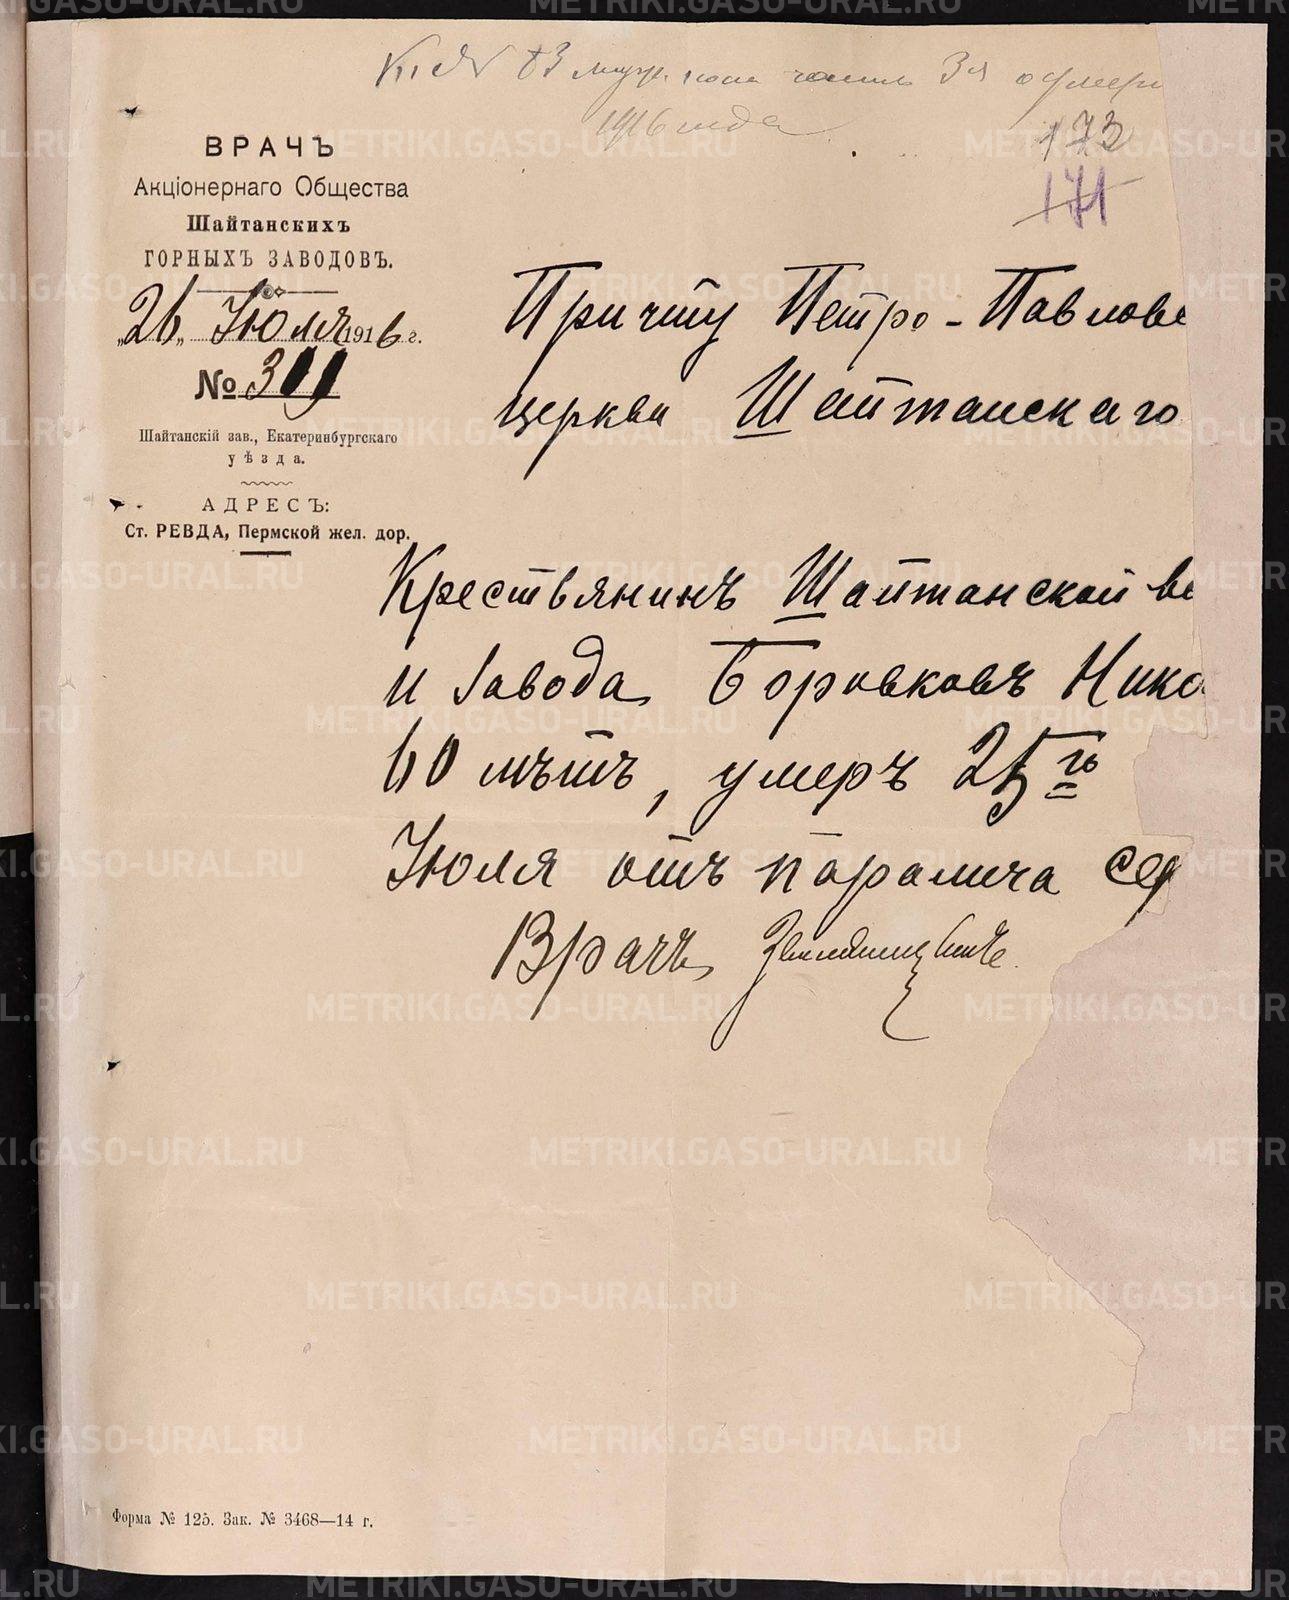 К № 83 муж. пола часть 3я о умерш
1916 года
173
171
ВРАЧЪ
Акціонернаго Общества
Шайтанскихъ
ГОРНЫХЪ ЗАВОДОВЪ.
„26„ Июля 1916 г.
№ 311
Шайтанскій зав., Екатеринбургскаго
уѣзда.
АДРЕСЪ:
Ст. РЕВДА, Пермской жел. дор.
Причту Петро-Павловс
церкви Шайтанскаго
Крестьянинъ Шайтанской во
и завода Боровковъ Нико
60 лѣтъ, умеръ 25го
Июля отъ паралича сер
Врачъ
Форма № 125. Зак. № 3468—14 г.
METRIKI.GASO-URAL.RU